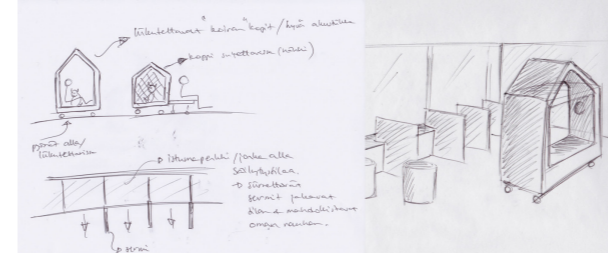 liikutettavat "koiran" kopit / hyvä akustiikka
koppi
pyörät alla /
liikutettavissa
istuinpenkki / jonka alla
säilytystilaa.
→ siirrettävät
sermit jakavat
tilan & mahdollistavat
oman rauhan.
sermi